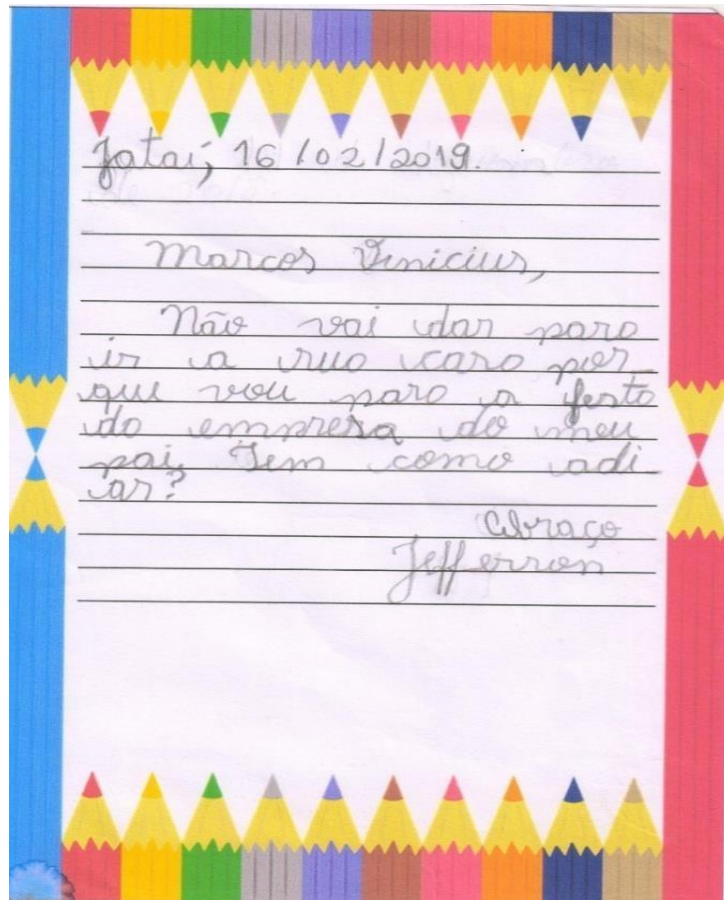 Jataí, 16/02/2019.
Marcos Vinicius,
Não vai dar para
ir a sua casa por
que vou para a festa
da empresa do meu
pai. Tem como adi
ar?
Abraço
Jefferson